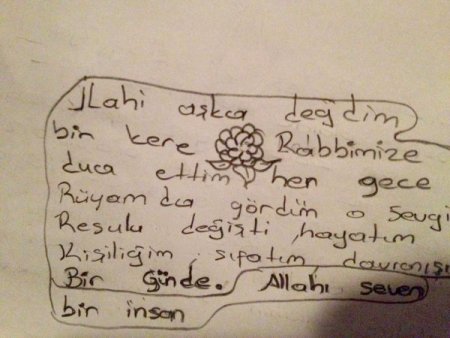 İLahi aşka değdim
bin kere Rabbimize
dua ettim her gece
Rüyamda gördüm o sevgi
Resulu değişti, hayatım
Kişiliğim, sıfatım davranışı
Bir Günde. Allahı seven
bir insan